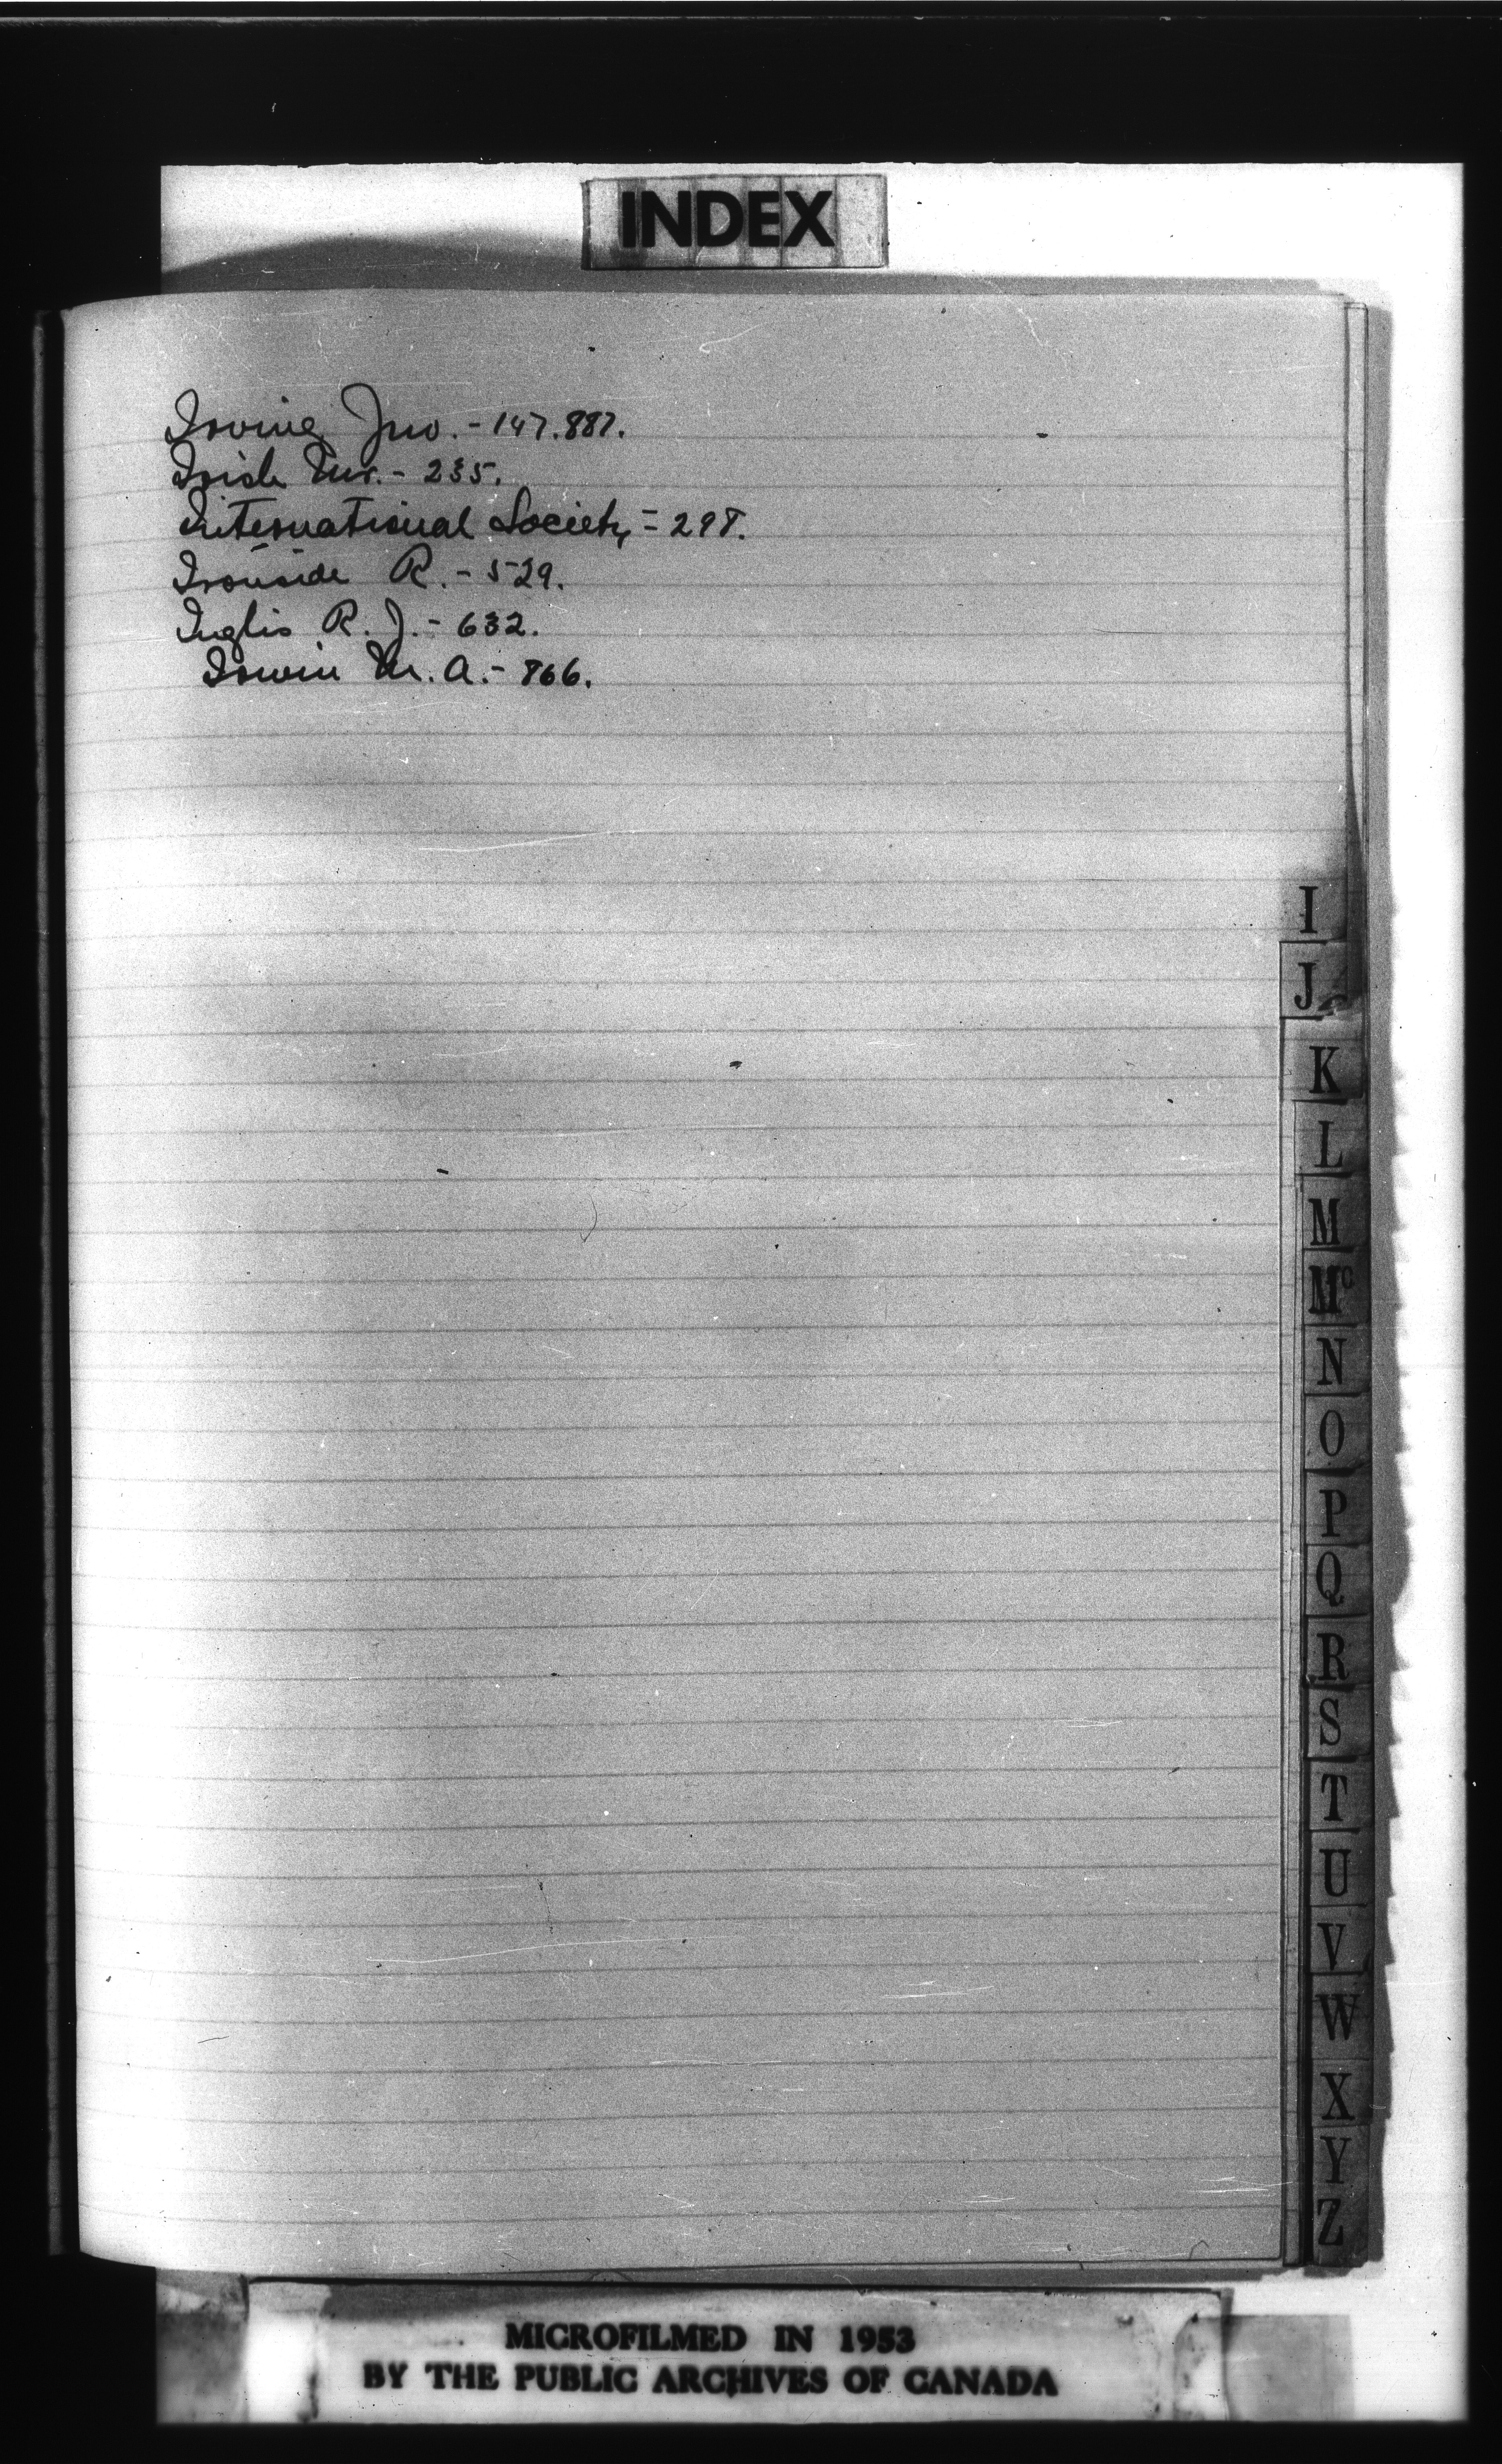 INDEX
Irving Jno. - 147. 887.
Irish Mr. - 235.
International Society - 298.
Ironside R. - 529.
Inglis R. J. - 632.
Irwin M. A. - 866.
I
J
K
L
M
Mc
N
O
P
Q
R
S
T
U
V
W
X
Y
Z
MICROFILMED IN 1953
BY THE PUBLIC ARCHIVES OF CANADA